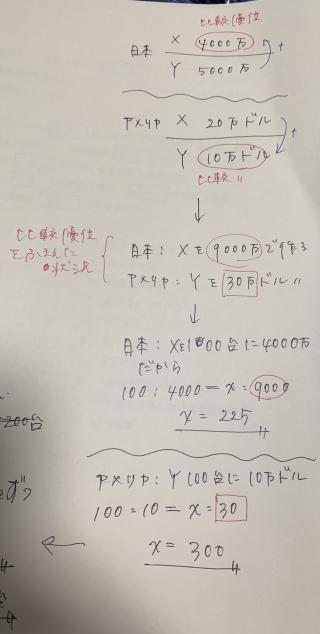 比較優位
日本 X 4000万
Y 5000万 +
アメリカ X 20万ドル
Y 10万ドル +
比較〃
↓
比較優位
をふまえた
状況
日本: Xを9000万で作る
アメリカ: Yを30万ドル〃
↓
日本: Xを100台に4000万
だから
100:4000=x=9000
x=225
アメリカ: Y100台に10万ドル
100=10=x=30
x=300
←
200台